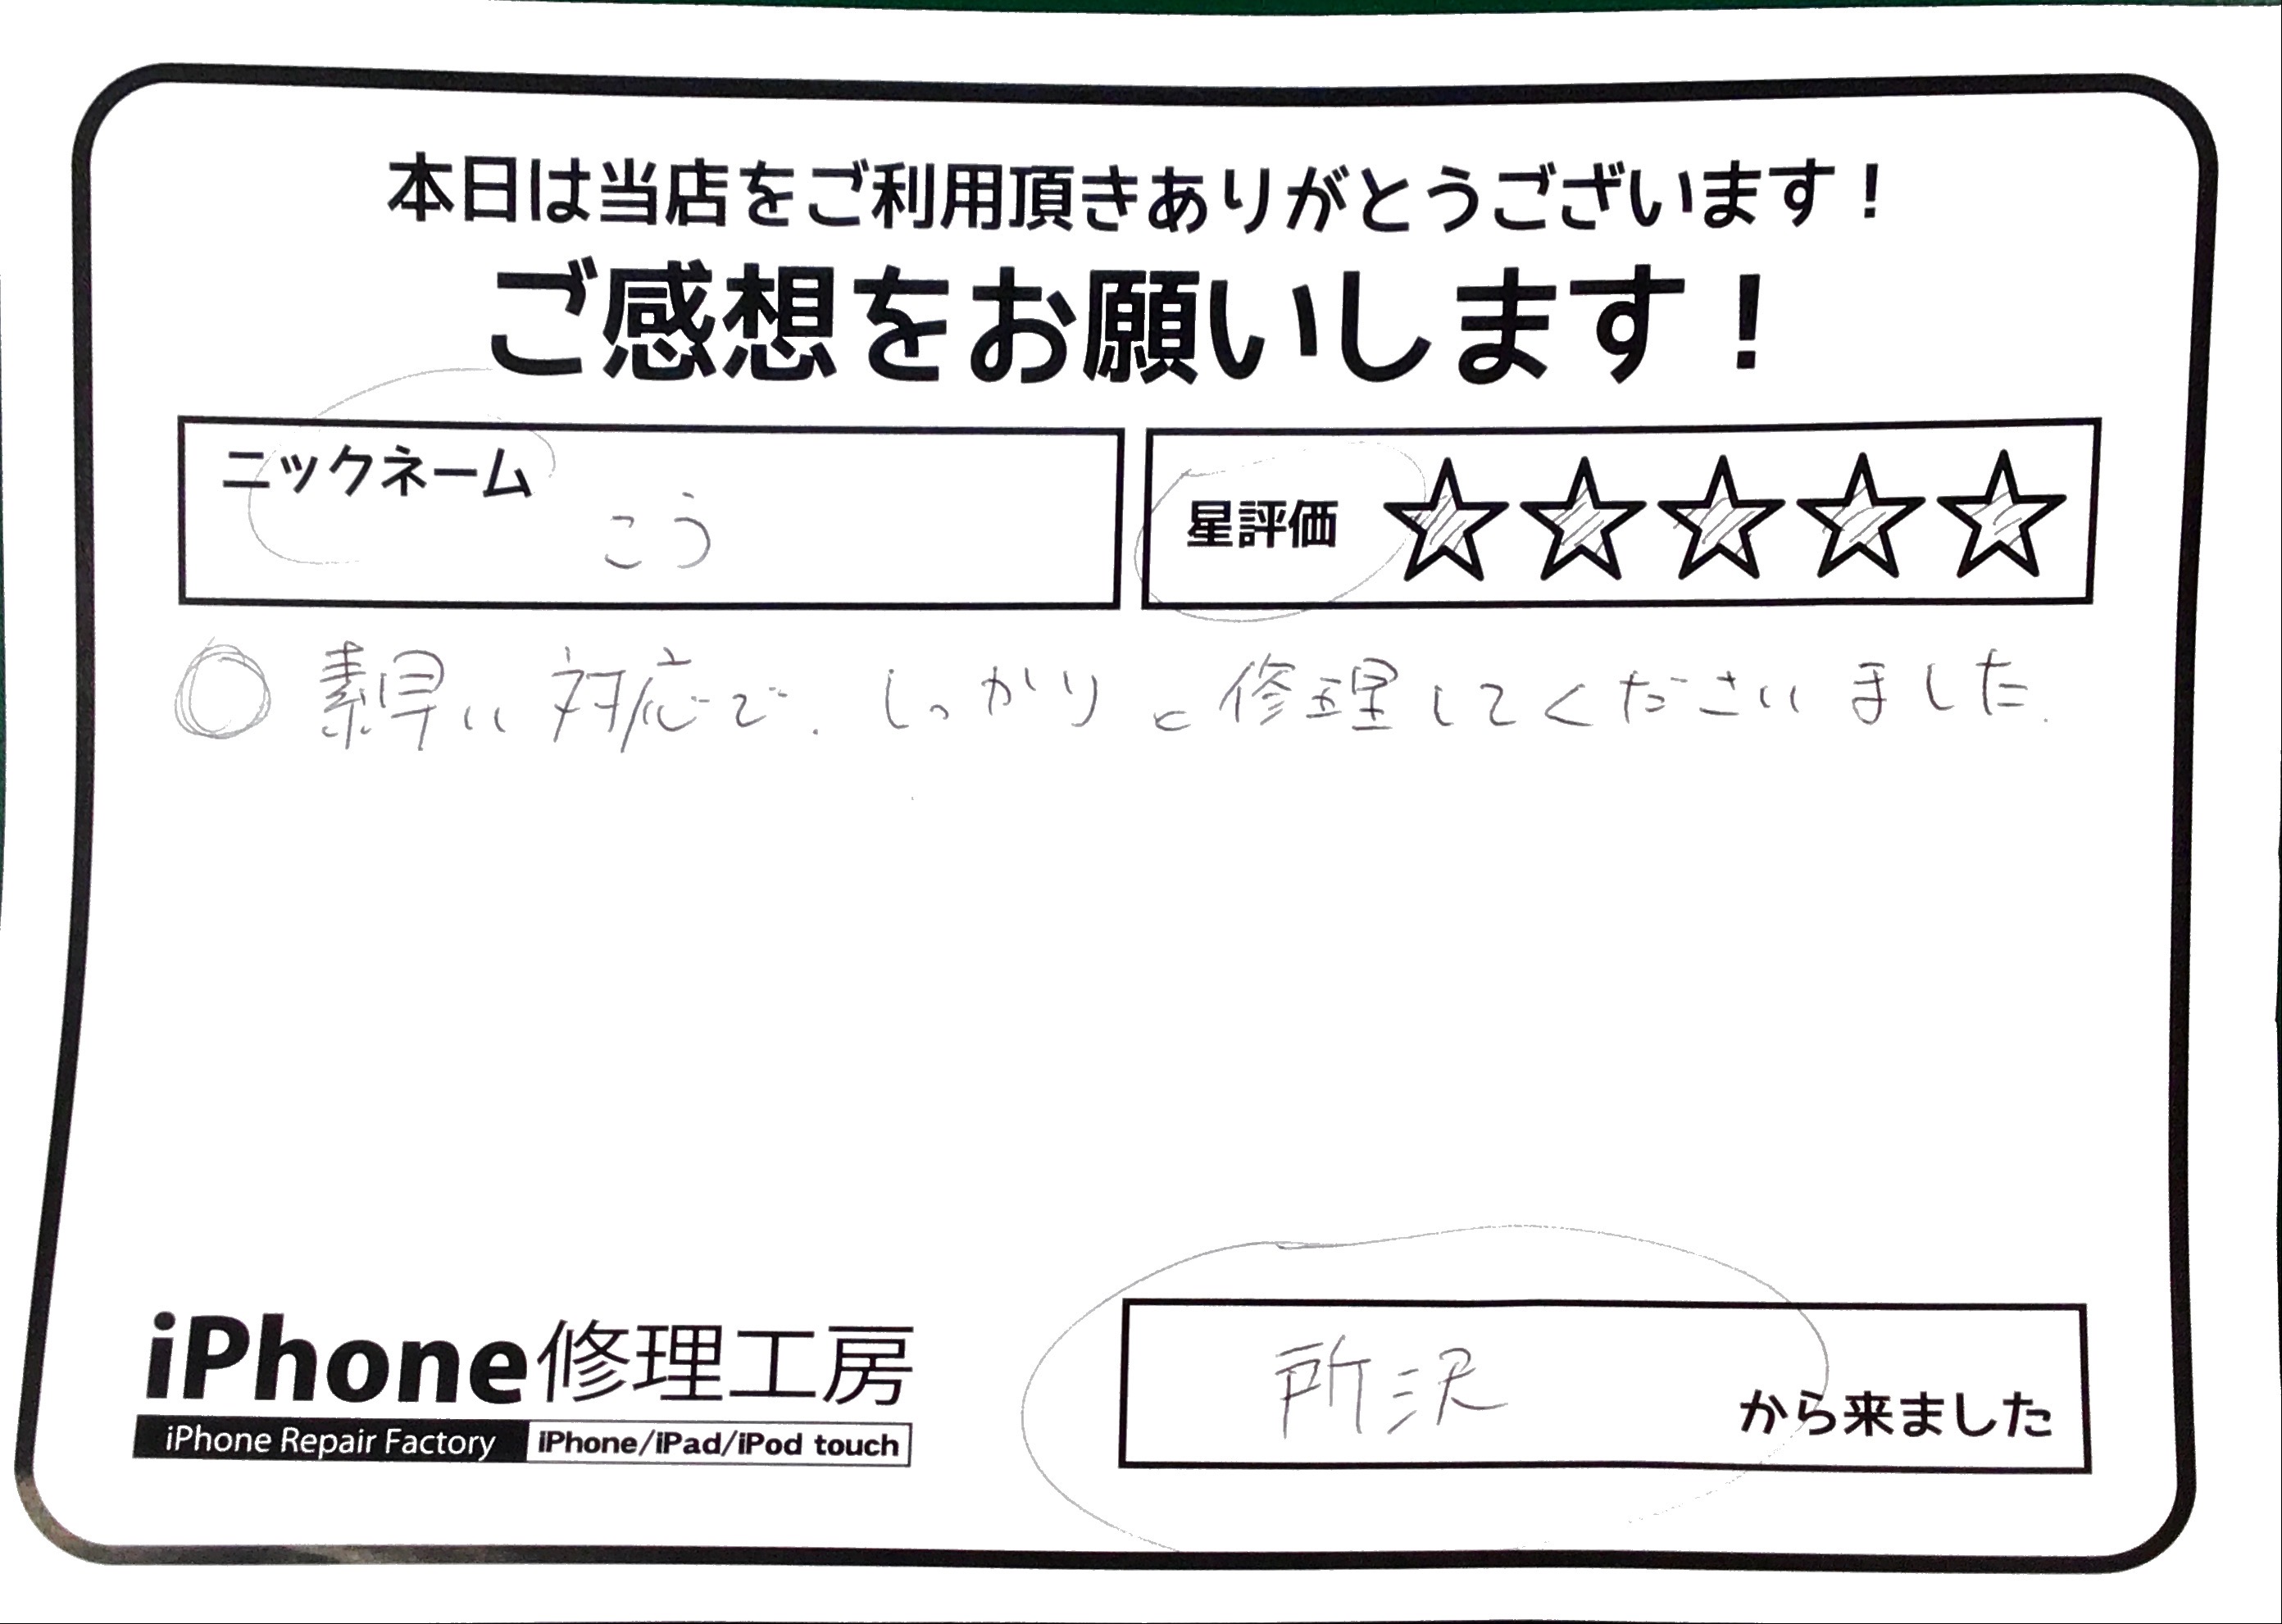 本日は当店をご利用頂きありがとうございます！
ご感想をお願いします！
ニックネーム こう
星評価 ☆☆☆☆☆
素早い対応で、しっかりと修理してくださいました。
iPhone修理工房
iPhone Repair Factory iPhone/iPad/iPod touch
所沢 から来ました